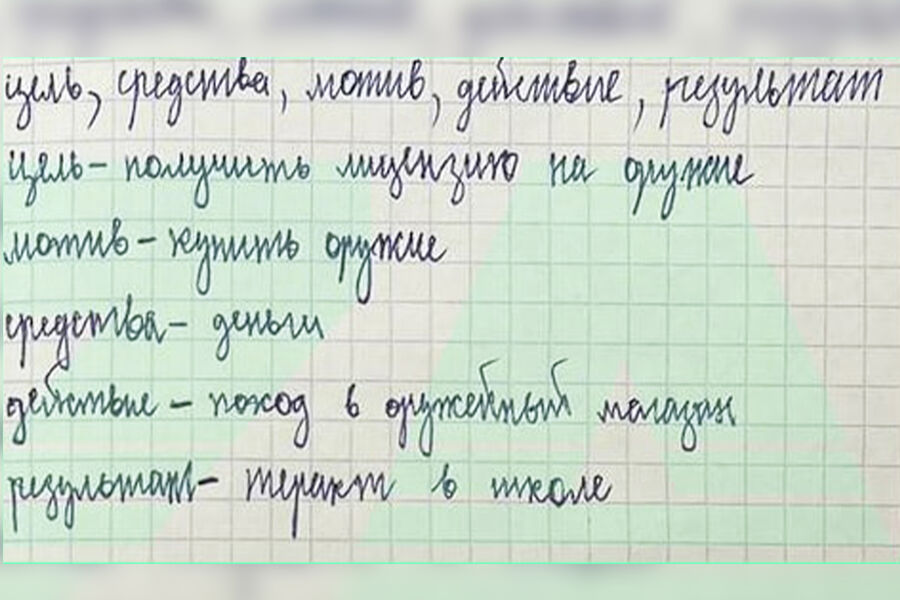 цель, средства, мотив, действие, результат
цель - получить лицензию на оружие
мотив - купить оружие
средства - деньги
действие - поход в оружейный магазин
результат - теракт в школе